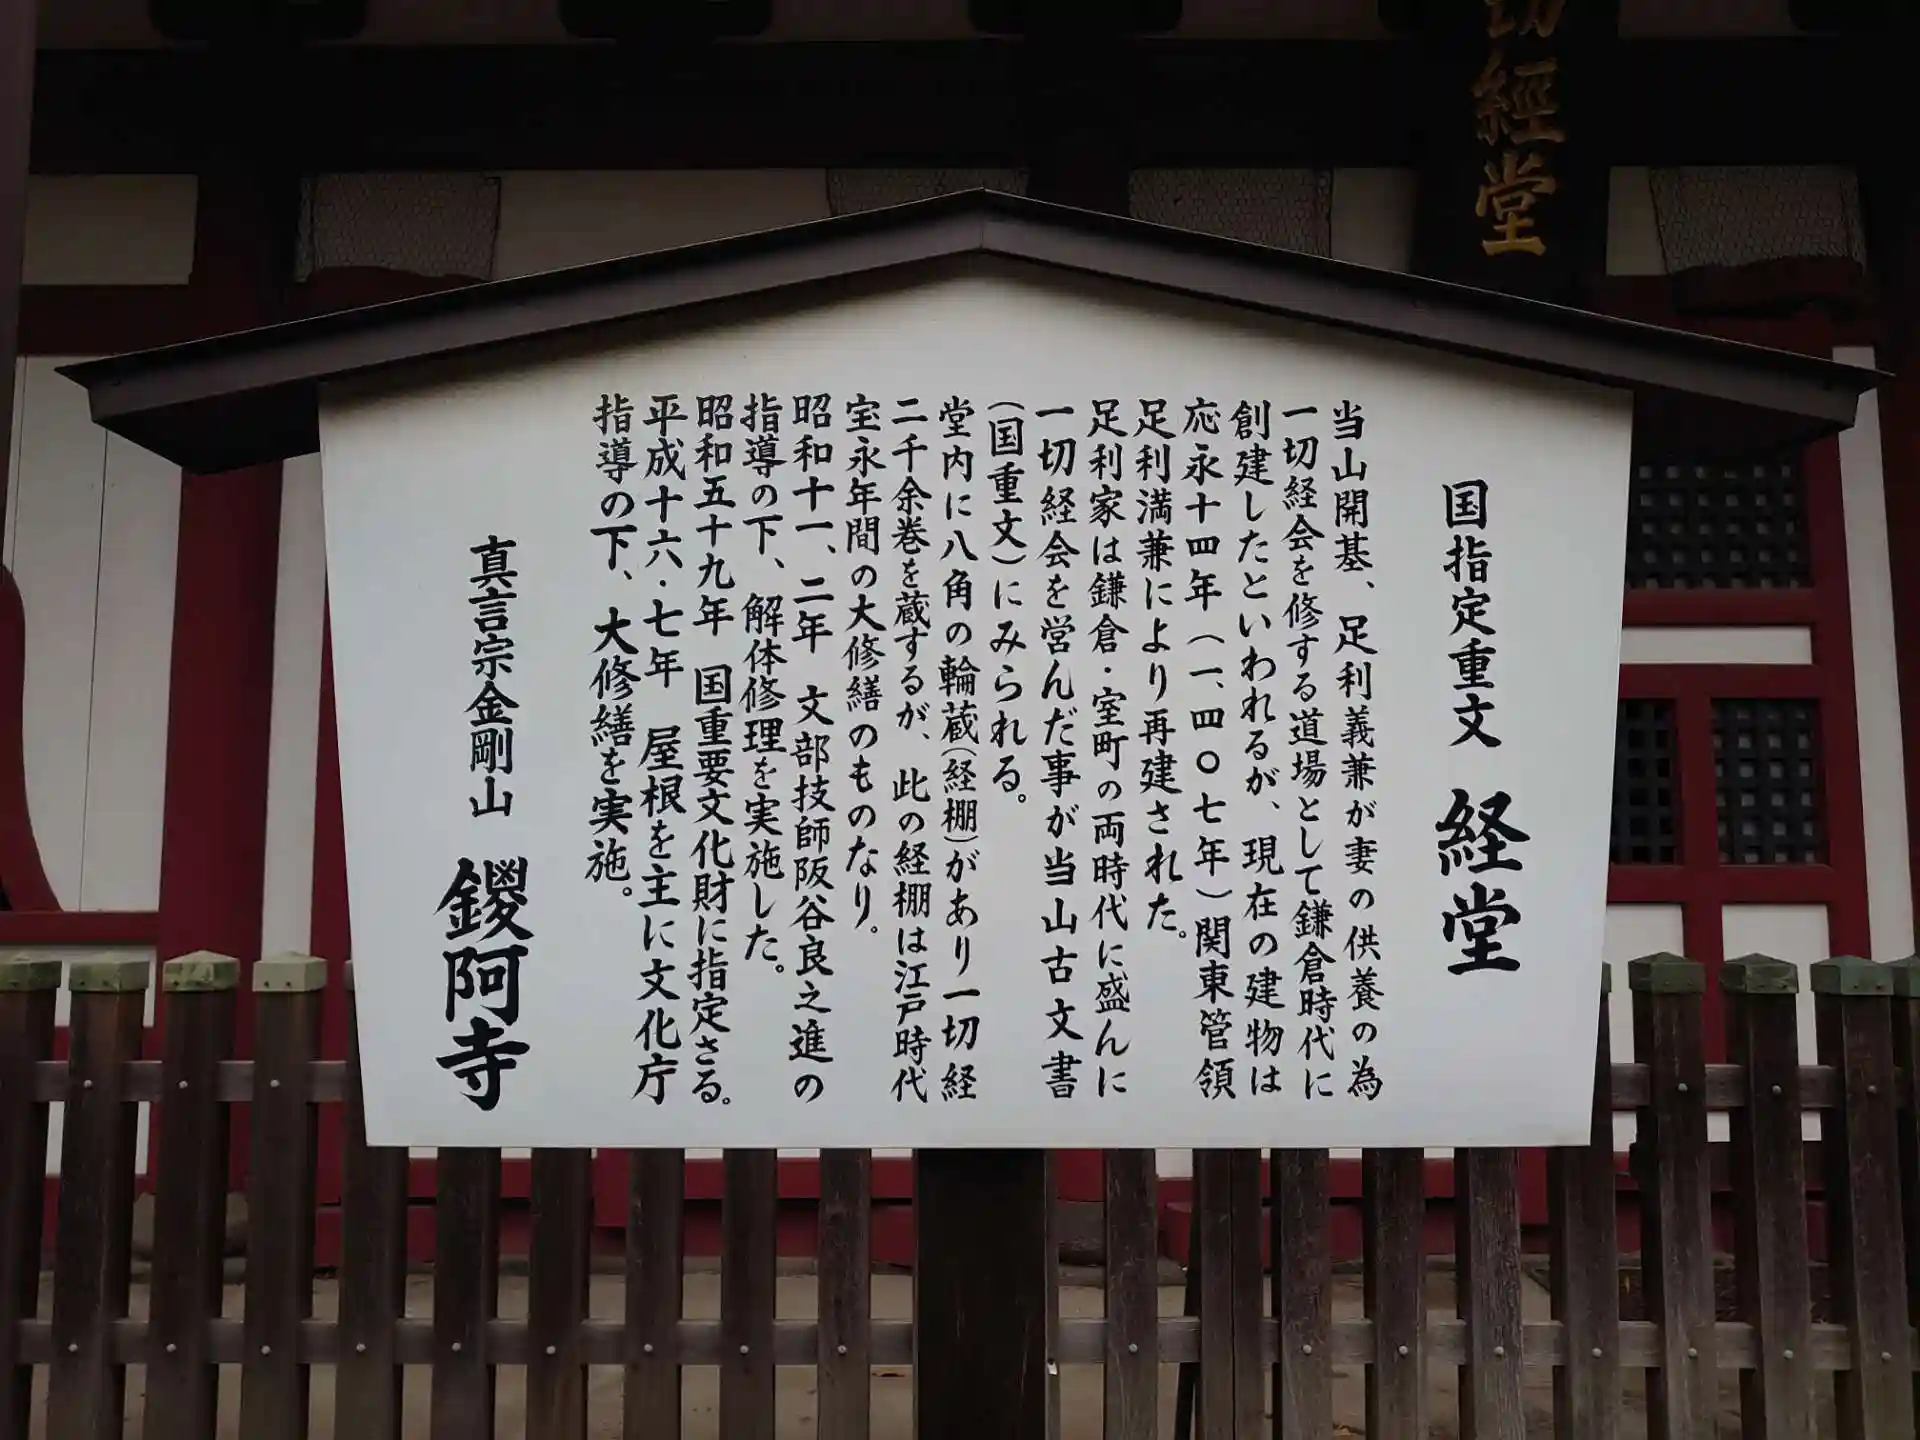 切經堂
国指定重文 経堂
当山開基、足利義兼が妻の供養の為
一切経会を修する道場として鎌倉時代に
創建したといわれるが、現在の建物は
応永十四年（一、四〇七年）関東管領
足利満兼により再建された。
足利家は鎌倉・室町の両時代に盛んに
一切経会を営んだ事が当山古文書
（国重文）にみられる。
堂内に八角の輪蔵（経棚）があり一切経
二千余巻を蔵するが、此の経棚は江戸時代
宝永年間の大修繕のものなり。
昭和十一、二年 文部技師阪谷良之進の
指導の下、解体修理を実施した。
昭和五十九年 国重要文化財に指定さる。
平成十六・七年 屋根を主に文化庁
指導の下、大修繕を実施。
真言宗金剛山 鑁阿寺